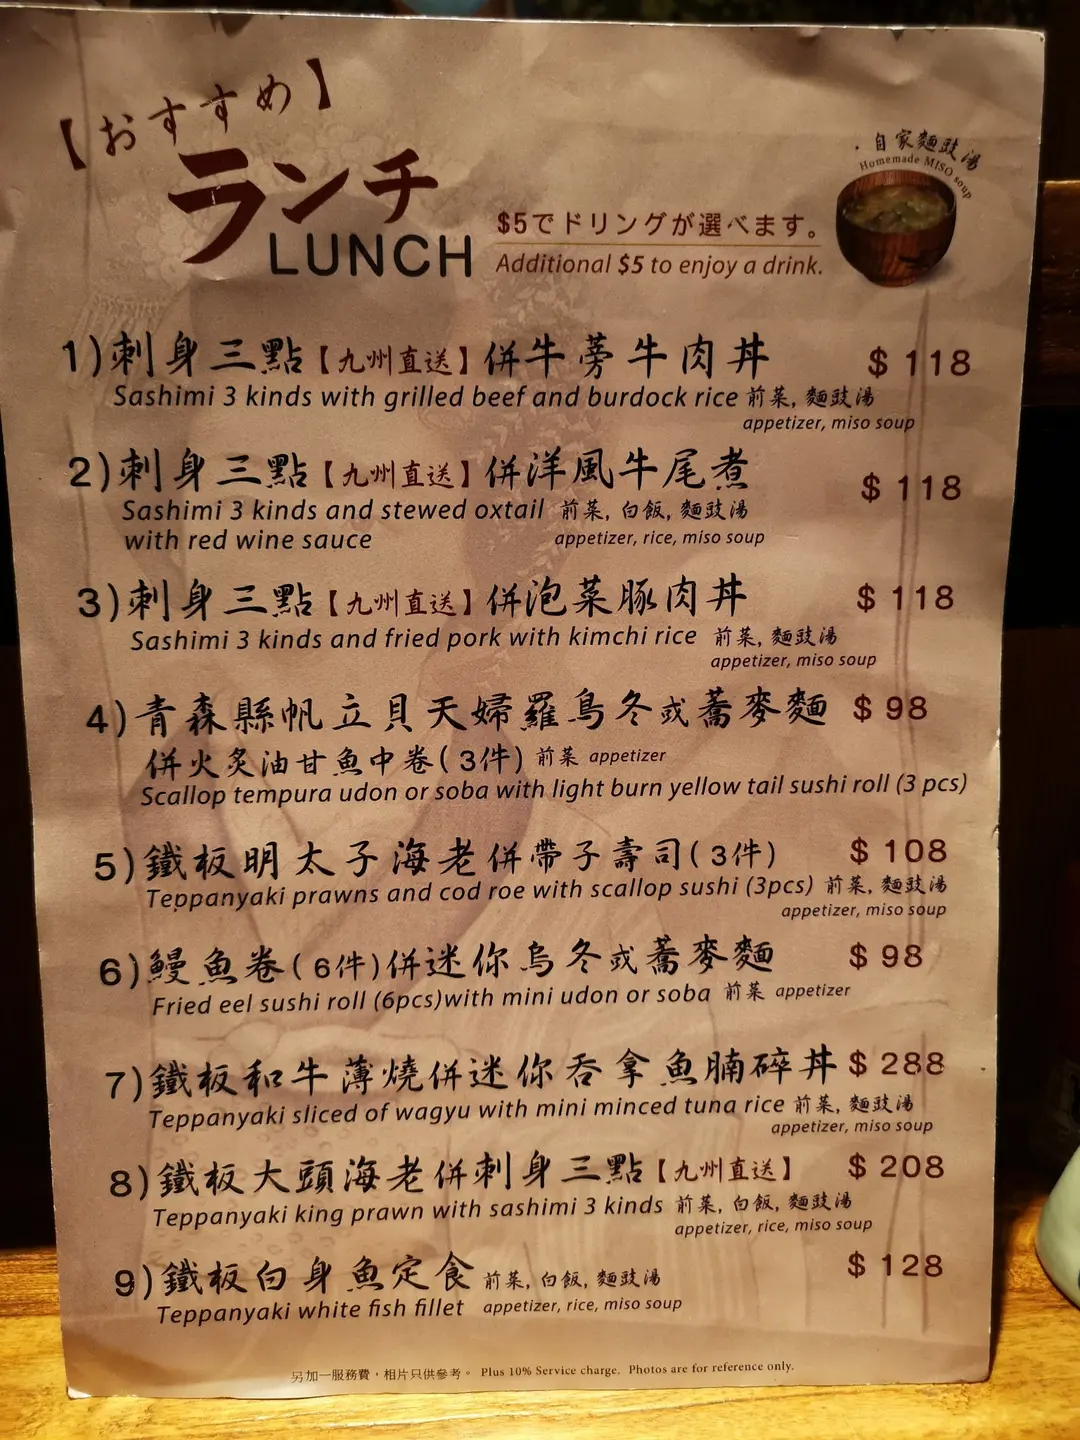 【おすすめ】
ランチ
LUNCH
$5でドリングが選べます。
Additional $5 to enjoy a drink.
・自家麵豉湯
Homemade MISO soup
1)刺身三點【九州直送】併牛蒡牛肉丼 $ 118
Sashimi 3 kinds with grilled beef and burdock rice 前菜, 麵豉湯
appetizer, miso soup
2)刺身三點【九州直送】併洋風牛尾煮 $ 118
Sashimi 3 kinds and stewed oxtail 前菜, 白飯, 麵豉湯
with red wine sauce appetizer, rice, miso soup
3)刺身三點【九州直送】併泡菜豚肉丼 $ 118
Sashimi 3 kinds and fried pork with kimchi rice 前菜, 麵豉湯
appetizer, miso soup
4)青森縣帆立貝天婦羅烏冬或蕎麥麵 $ 98
併火炙油甘魚中卷(3件) 前菜 appetizer
Scallop tempura udon or soba with light burn yellow tail sushi roll (3 pcs)
5)鐵板明太子海老併帶子壽司(3件) $ 108
Teppanyaki prawns and cod roe with scallop sushi (3pcs) 前菜, 麵豉湯
appetizer, miso soup
6)鰻魚卷(6件)併迷你烏冬或蕎麥麵 $ 98
Fried eel sushi roll (6pcs)with mini udon or soba 前菜 appetizer
7)鐵板和牛薄燒併迷你吞拿魚腩碎丼 $ 288
Teppanyaki sliced of wagyu with mini minced tuna rice 前菜, 麵豉湯
appetizer, miso soup
8)鐵板大頭海老併刺身三點【九州直送】 $ 208
Teppanyaki king prawn with sashimi 3 kinds 前菜, 白飯, 麵豉湯
appetizer, rice, miso soup
9)鐵板白身魚定食 前菜, 白飯, 麵豉湯 $ 128
Teppanyaki white fish fillet appetizer, rice, miso soup
另加一服務費，相片只供參考。 Plus 10% Service charge. Photos are for reference only.